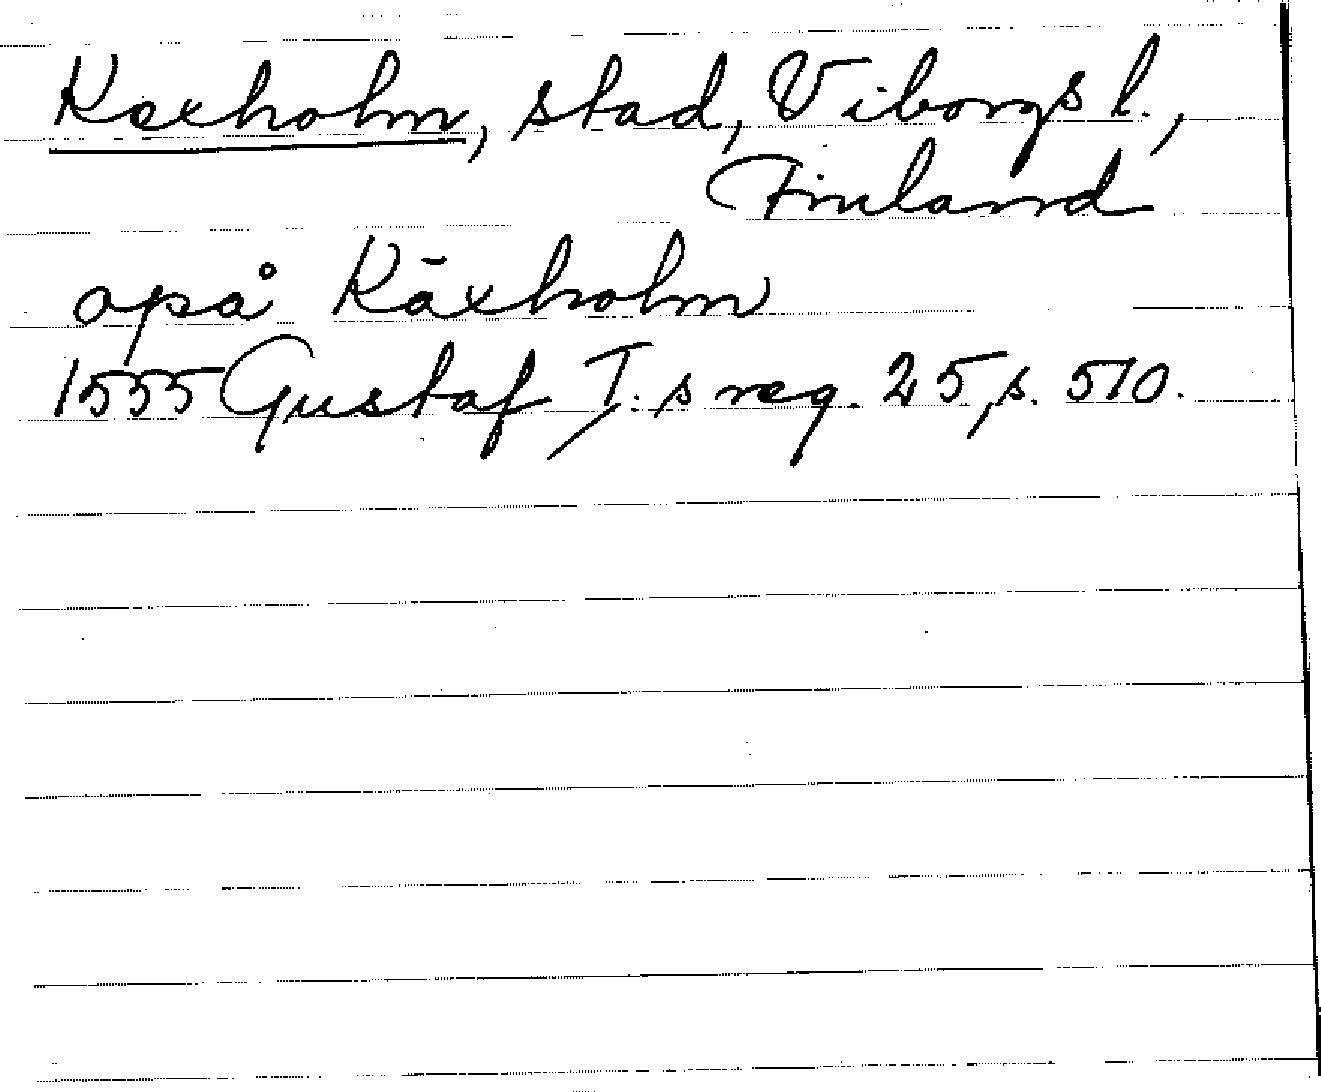 Kexholm, stad, Viborgs l.,
Finland
opå Käxholm
1555 Gustaf I:s reg. 25, s. 510.